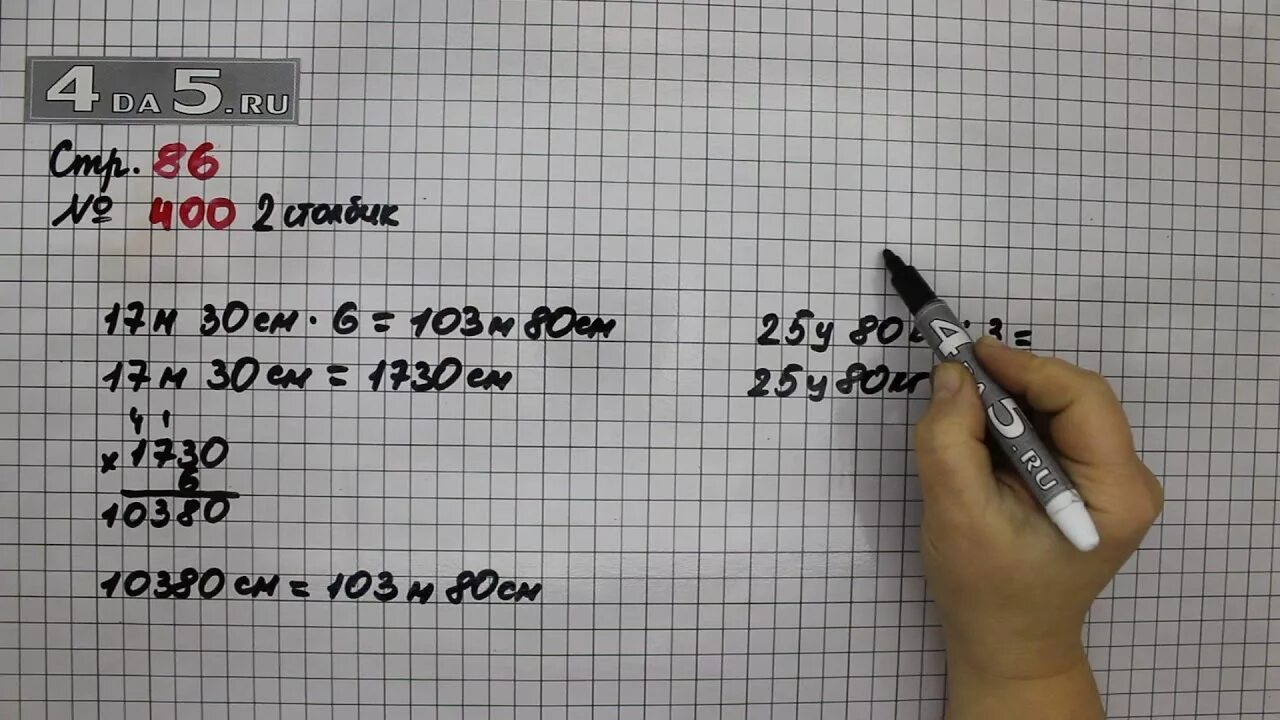 4DA5.RU
Стр. 86
№ 400 2 столбик
17м 30см · 6 = 103м 80см
17м 30см = 1730см
4 1
× 1730
6
10380
10380см = 103м 80см
25ц 80к · 3 =
25ц 80кг
4DA5.RU